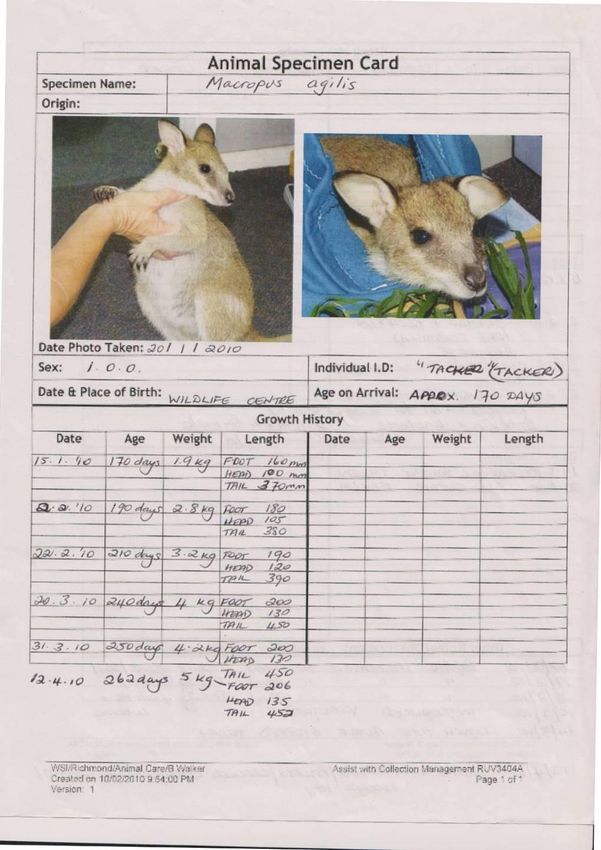 Animal Specimen Card
Specimen Name: Macropus agilis
Origin:
Date Photo Taken: 20/ 1 / 2010
Sex: 1. 0. 0.
Individual I.D: "TACKER" (TACKERI)
Date & Place of Birth: WILDLIFE CENTRE
Age on Arrival: APPOX. 170 DAYS
Growth History
Date Age Weight Length Date Age Weight Length
15. 1. '10 170 days 1.9 kg FOOT 160 mm
HEAD 100 mm
TAIL 370mm
2. 2. '10 190 days 2.8 kg FOOT 180
HEAD 105
TAIL 380
22. 2. '10 210 days 3.2 kg FOOT 190
HEAD 120
TAIL 390
20. 3. 10 240 days 4 kg FOOT 200
HEAD 130
TAIL 450
31. 3. 10 250 days 4.2kg FOOT 200
HEAD 130
TAIL 450
12.4.10 262 days 5 kg FOOT 206
HEAD 135
TAIL 452
WSI/Richmond/Animal Care/B Walker
Assist with Collection Management RUV3404A
Created on 10/02/2010 9:54:00 PM
Page 1 of 1
Version: 1